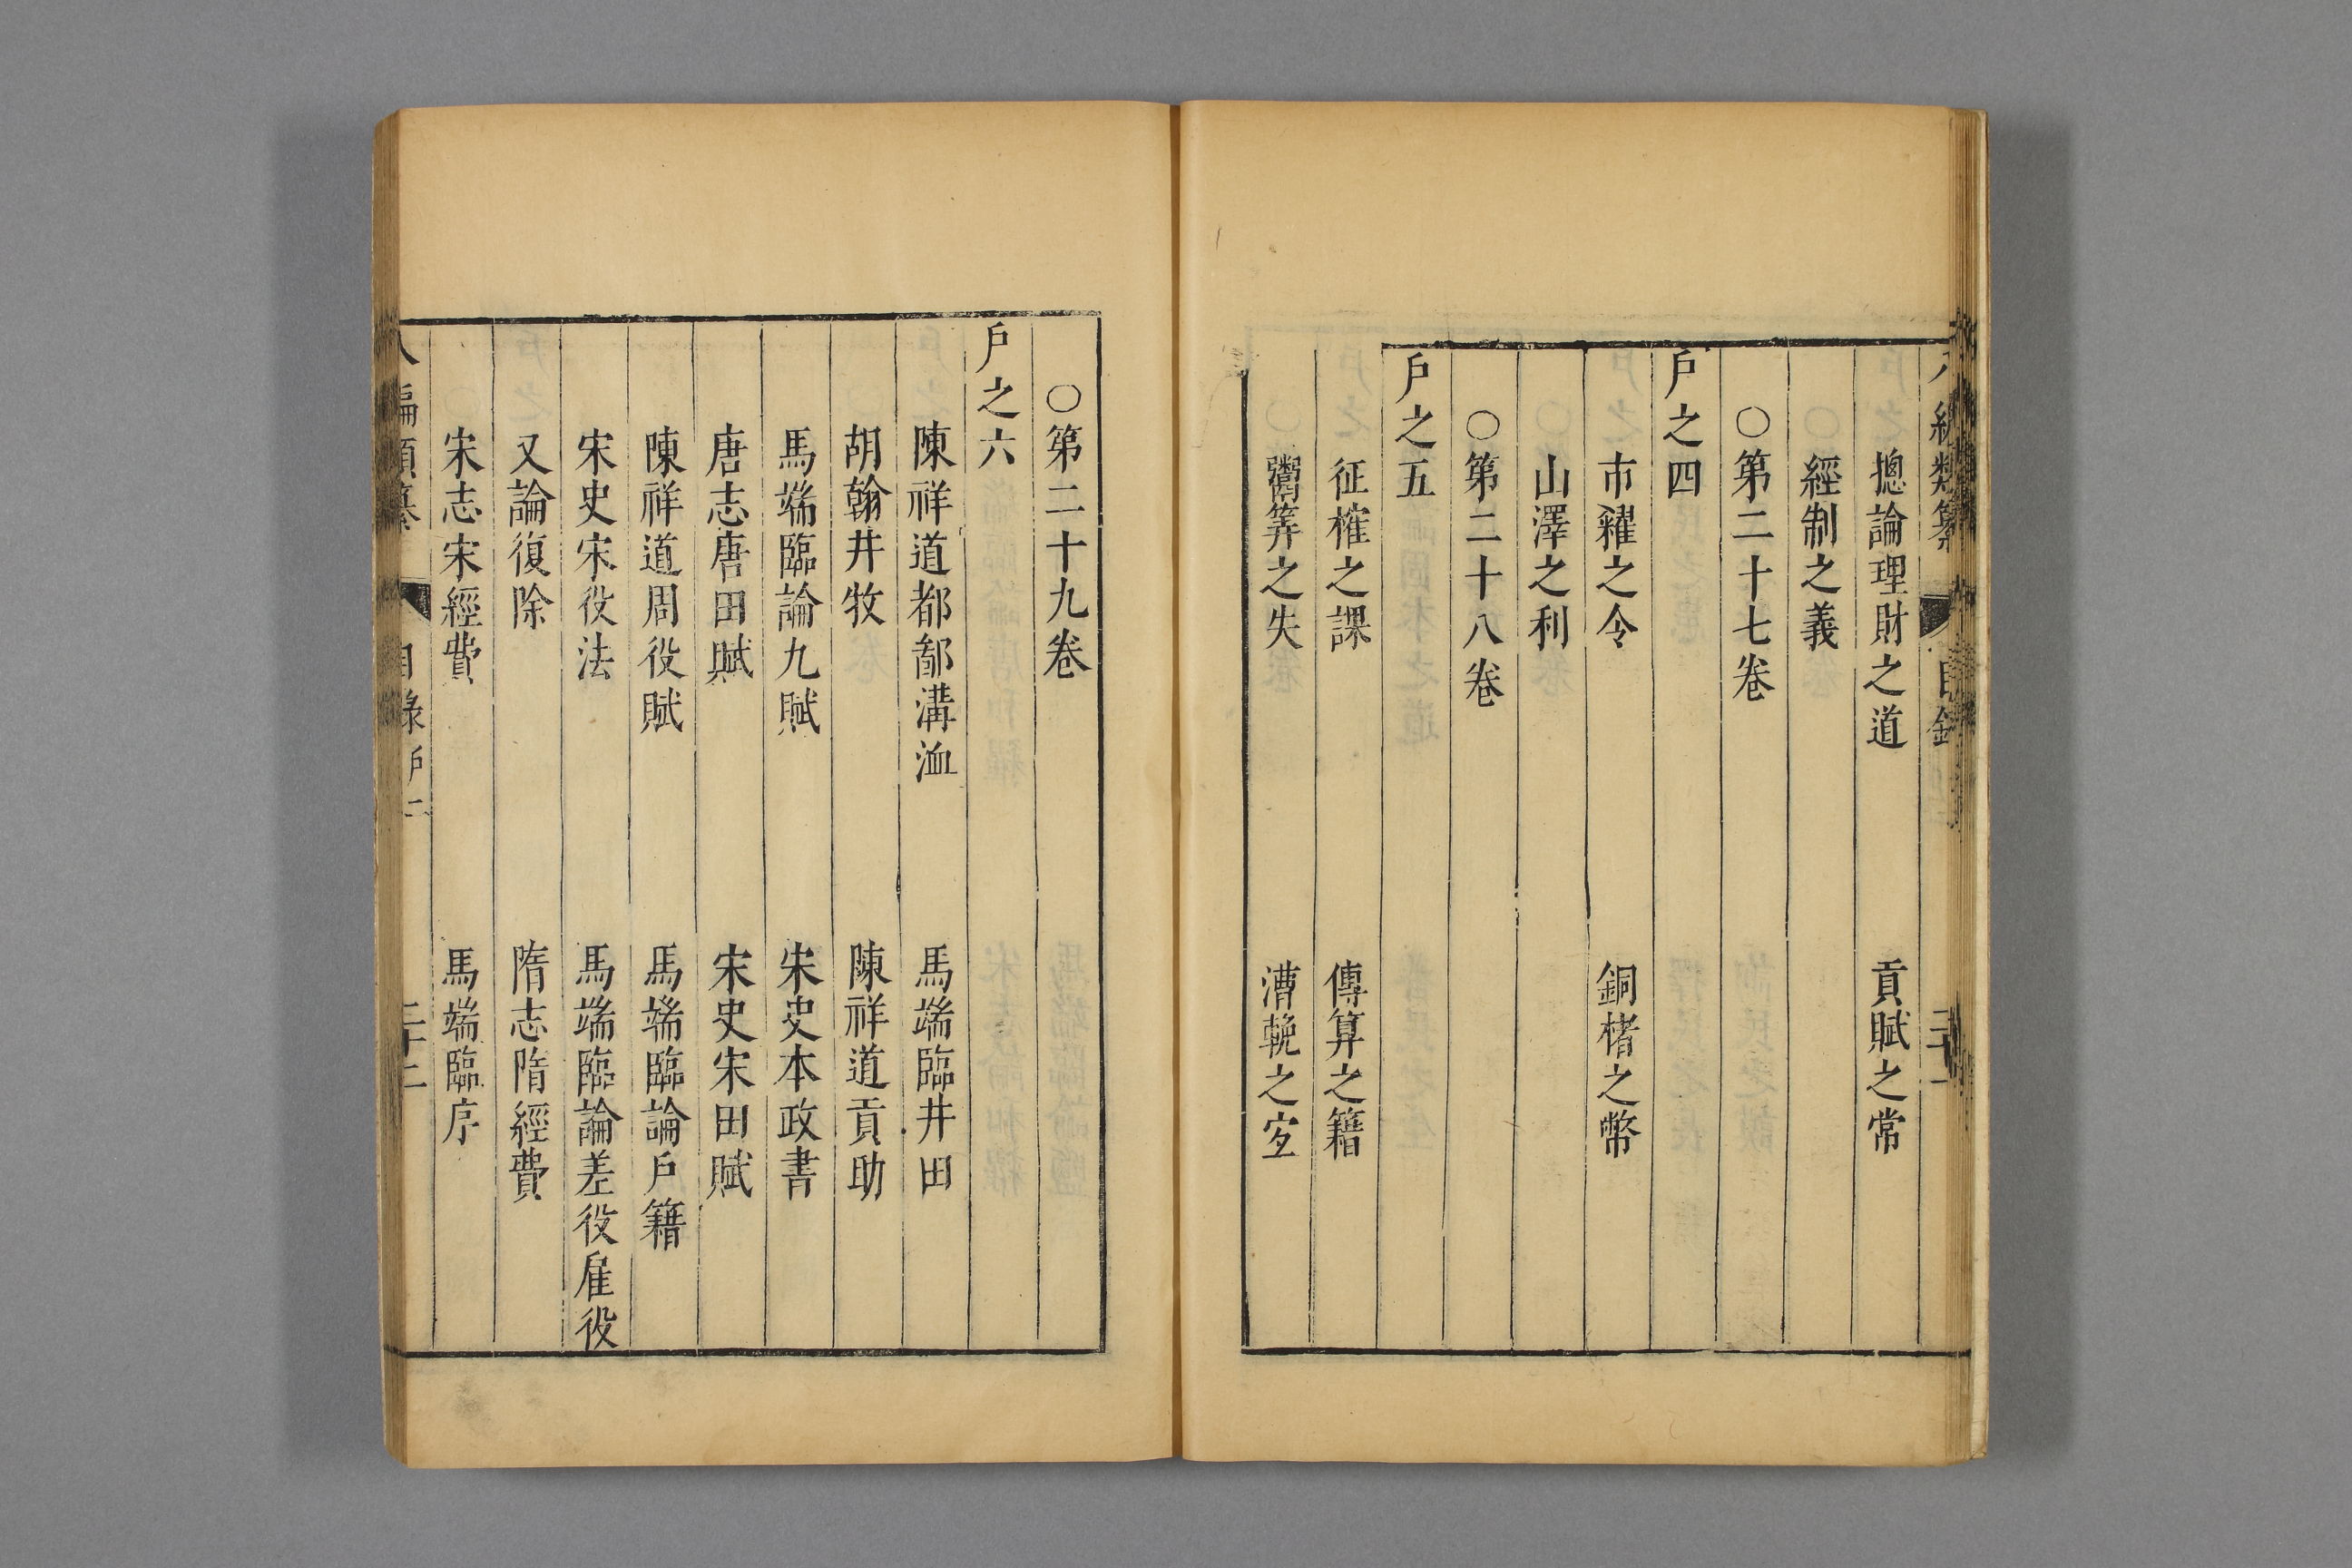 編類纂 目錄
摠論理財之道 貢賦之常
經制之義
○第二十七卷
戶之四
市糴之令 銅楮之幣
山澤之利
○第二十八卷
戶之五
征榷之課 傳算之籍
鬻筭之失 漕輓之宐
○第二十九卷
戶之六
陳祥道都鄙溝洫 馬端臨井田
胡翰井牧 陳祥道貢助
馬端臨論九賦 宋史本政書
唐志唐田賦 宋史宋田賦
陳祥道周役賦 馬端臨論戶籍
宋史宋役法 馬端臨論差役雇役
又論復除 隋志隋經費
宋志宋經費 馬端臨序
八編類纂 目錄戶二 二十二